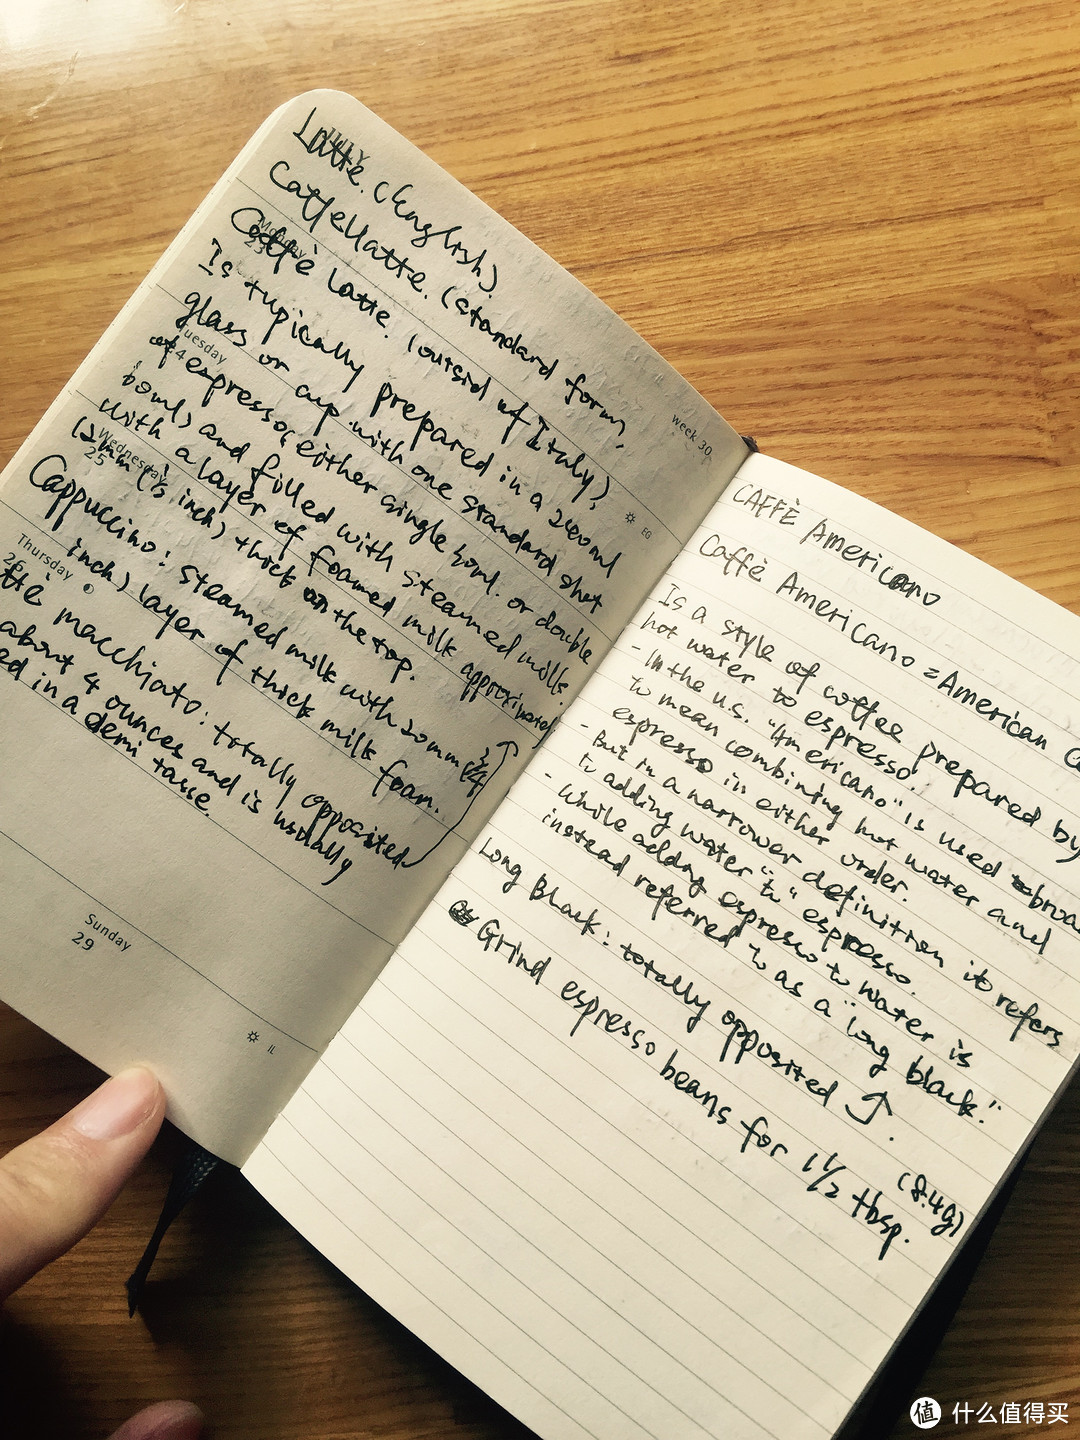 JULY
Latte. (English).
Caffellatte. (standard form,
Caffè latte. (outsid of Italy)
Is typically prepared in a 240ml
glass or cup with one standard shot
of espresso, either single bowl. or double
bowl, and filled with steamed milk.
with a layer of foamed milk approximately
12mm (½ inch) thick on the top.
Cappuccino: steamed milk with 20mm (¾
inch) layer of thick milk foam.
macchiato: totally opposited
about 4 ounces and is usually
ed in a demi tasse.
week 30
Monday
23
Tuesday
24
EG
Wednesday
25
Thursday
26
Sunday
29
IL
CAFFÈ Americano
Caffè Americano = American
Is a style of coffee prepared by
hot water to espresso.
- In the U.S. "Americano" is used broa
to mean combining hot water and
espresso in either order.
- But in a narrower definition it refers
to adding water "to" espresso.
- While adding espresso to water is
instead referred to as a "long black".
Long Black: totally opposited ↑.
Grind espresso beans for 1 1/2 tbsp.
(8.4g)
值 什么值得买